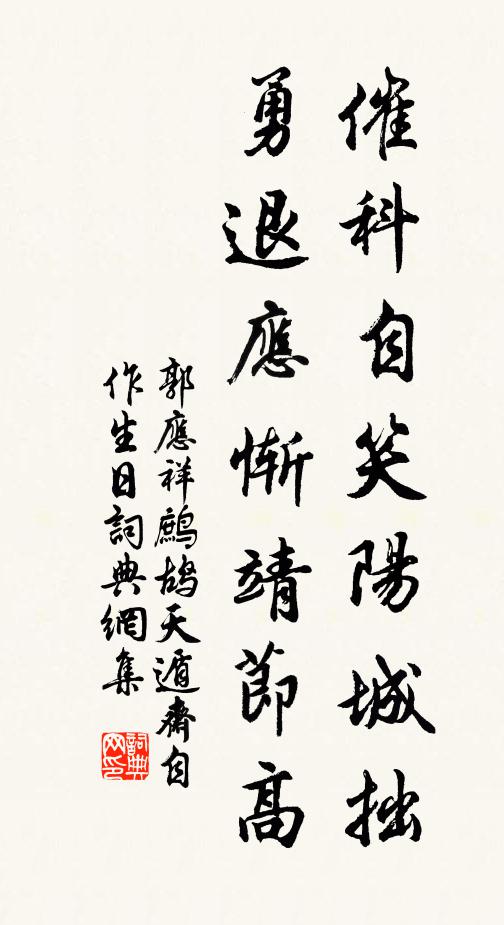 催科自笑陽城拙
勇退應慚靖節高
郭應祥鷓鴣天遁齋自
作生日詞典網集
詞典网印